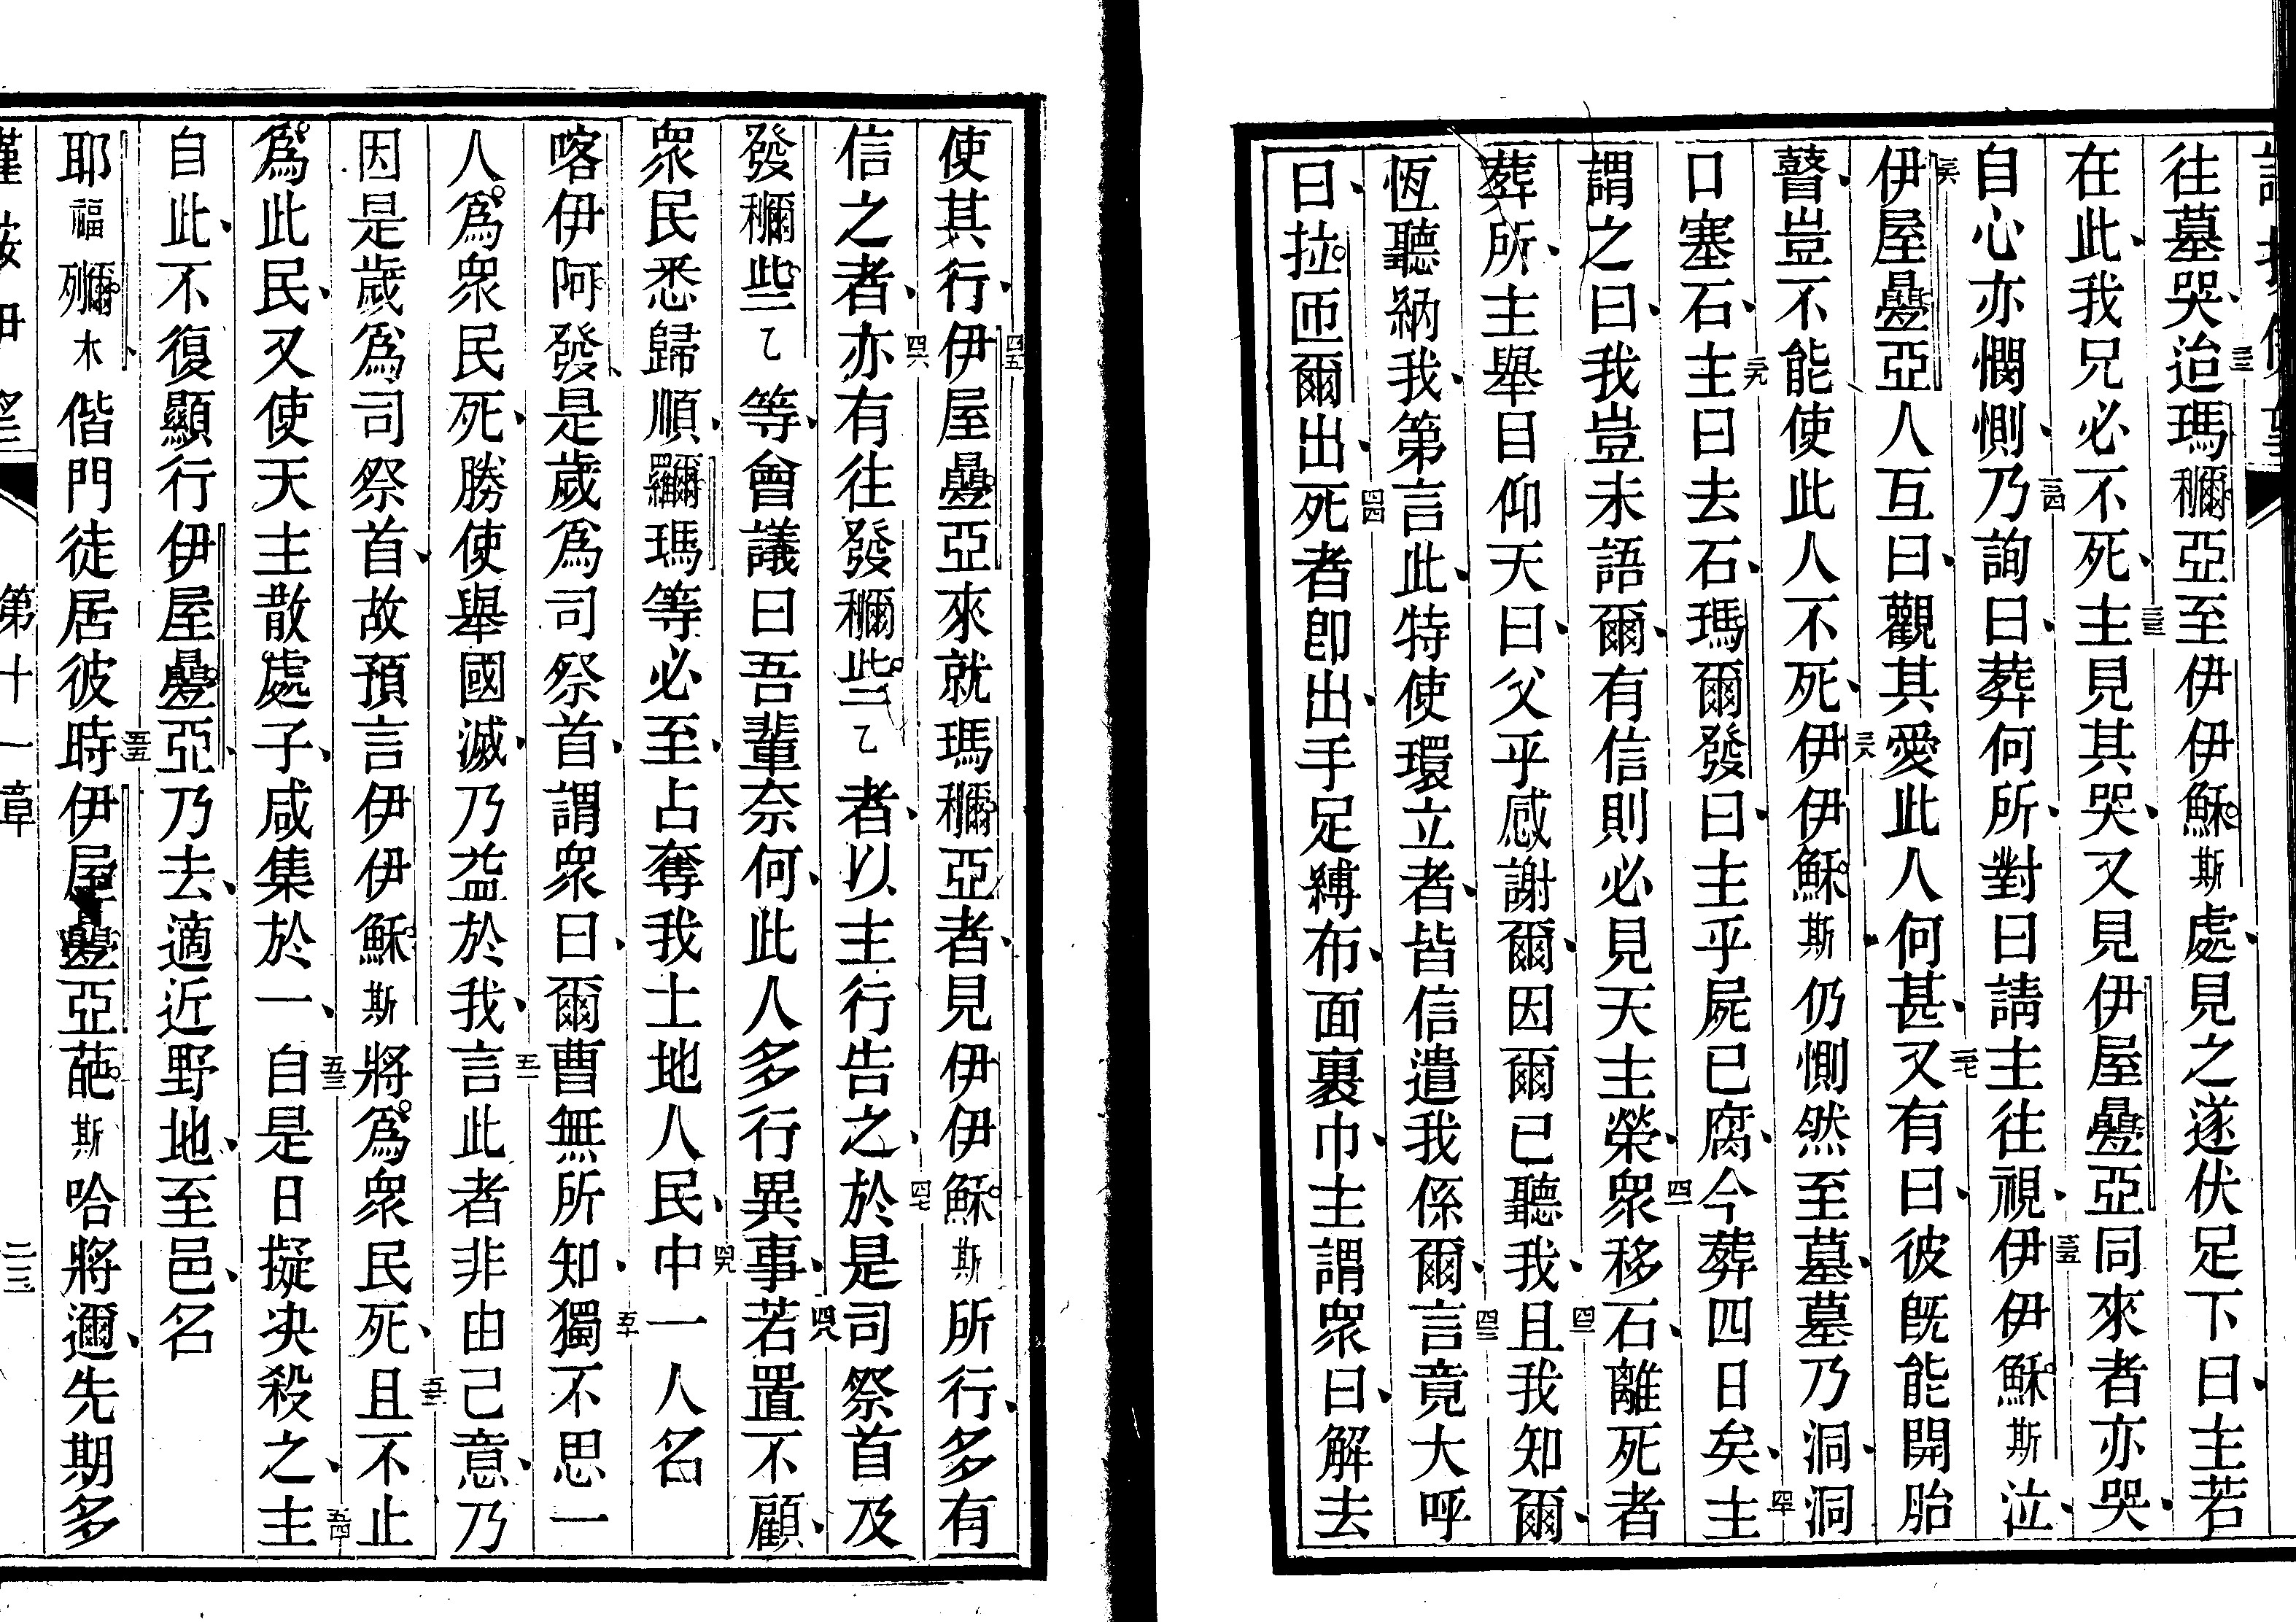 往墓哭、三二迨瑪𥡴亞至伊伊穌斯處、見之遂伏足下曰、主若
在此、我兄必不死、三三主見其哭、又見伊屋疊亞同來者亦哭、
自心亦憫惻、三四乃詢曰、葬何所、對曰請主往視、三五伊伊穌斯泣、
三六伊屋疊亞人互曰、觀其愛此人何甚、三七又有曰、彼旣能開胎
瞽、豈不能使此人不死、三八伊伊穌斯仍惻然至墓、墓乃洞、洞
口塞石、三九主曰去石、瑪爾發曰、主乎屍已腐、今葬四日矣、四十主
謂之曰、我豈未語爾、爾有信則必見天主榮、四一衆移石、離死者
葬所、主舉目仰天曰、父乎感謝爾、因爾已聽我、四二且我知爾、
恆聽納我、第言此、特使環立者、皆信遣我係爾、四三言竟大呼
曰、拉匝爾出、四四死者卽出、手足縛布、面裹巾、主謂衆曰、解去
使其行、四五伊屋疊亞來就瑪𥡴亞者、見伊伊穌斯所行、多有
信之者、四六亦有往發𥡴些乙者、以主行告之、四七於是司祭首及
發𥡴些乙等、會議曰吾輩奈何、此人多行異事、四八若置不顧、
衆民悉歸順、羅爾瑪等必至、占奪我土地人民、四九中一人名
喀伊阿發、是歲爲司祭首、謂衆曰、爾曹無所知、五十獨不思一
人爲衆民死、勝使舉國滅、乃益於我、五一言此者非由己意、乃
因是歲爲司祭首、故預言伊伊穌斯將爲衆民死、五二且不止
爲此民、又使天主散處子、咸集於一、五三自是日擬決殺之、五四主
自此、不復顯行伊屋疊亞、乃去、適近野地、至邑、名
耶福列爾木、偕門徒居彼、五五時伊屋疊亞葩斯哈將邇、先期多
第十一章
二三